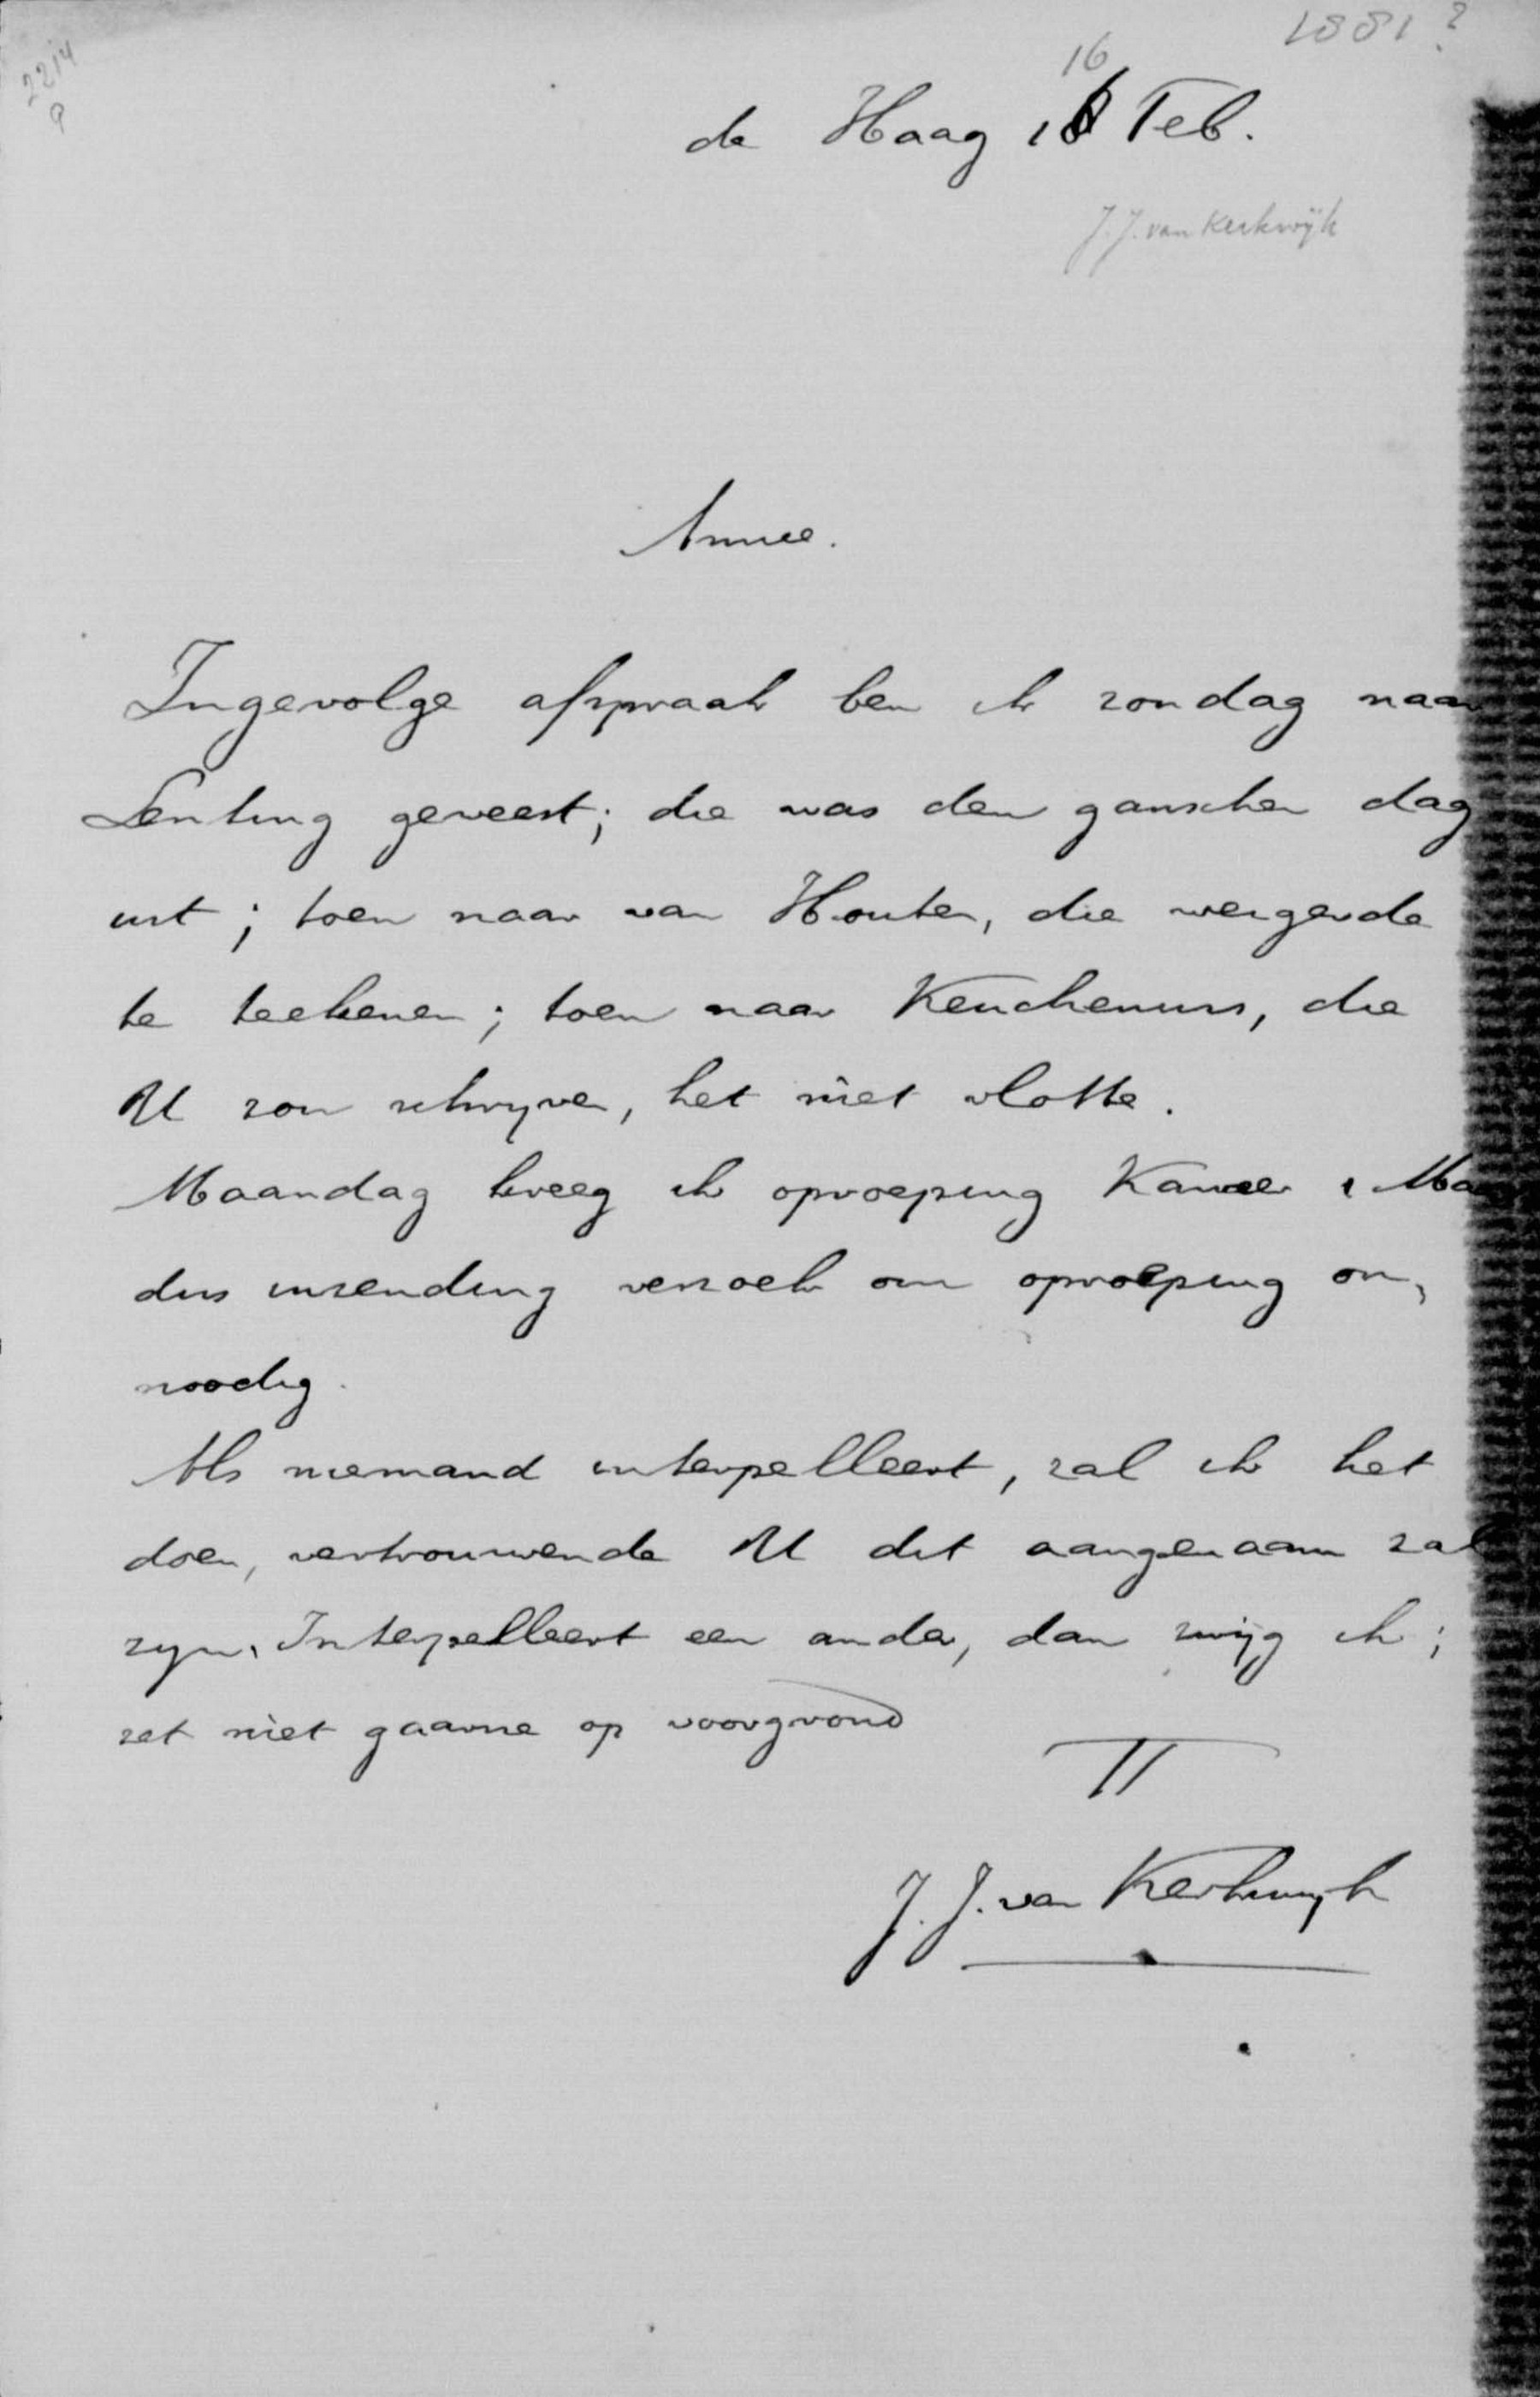 1881?
2214
16
de Haag 16 Feb.
J. J. van Kerkwijk
Amice.
Ingevolge afspraak ben ik zondag naar
Lenting geweest; die was den ganschen dag
uit; toen naar van Houten, die weigerde
te teekenen; toen naar Keuchenius, die
U zou schryven, het niet vlotte.
Maandag kreeg ik oproeping Kamer 1 Ma
dus inzending verzoek om oproeping on,
noodig.
Als niemand interpelleert, zal ik het
doen, vertrouwende U dit aangenaam zal
zyn. Interpelleert een ander, dan zwijg ik;
zet niet gaarne op voorgrond
TT
J. J. van Kerkwyk